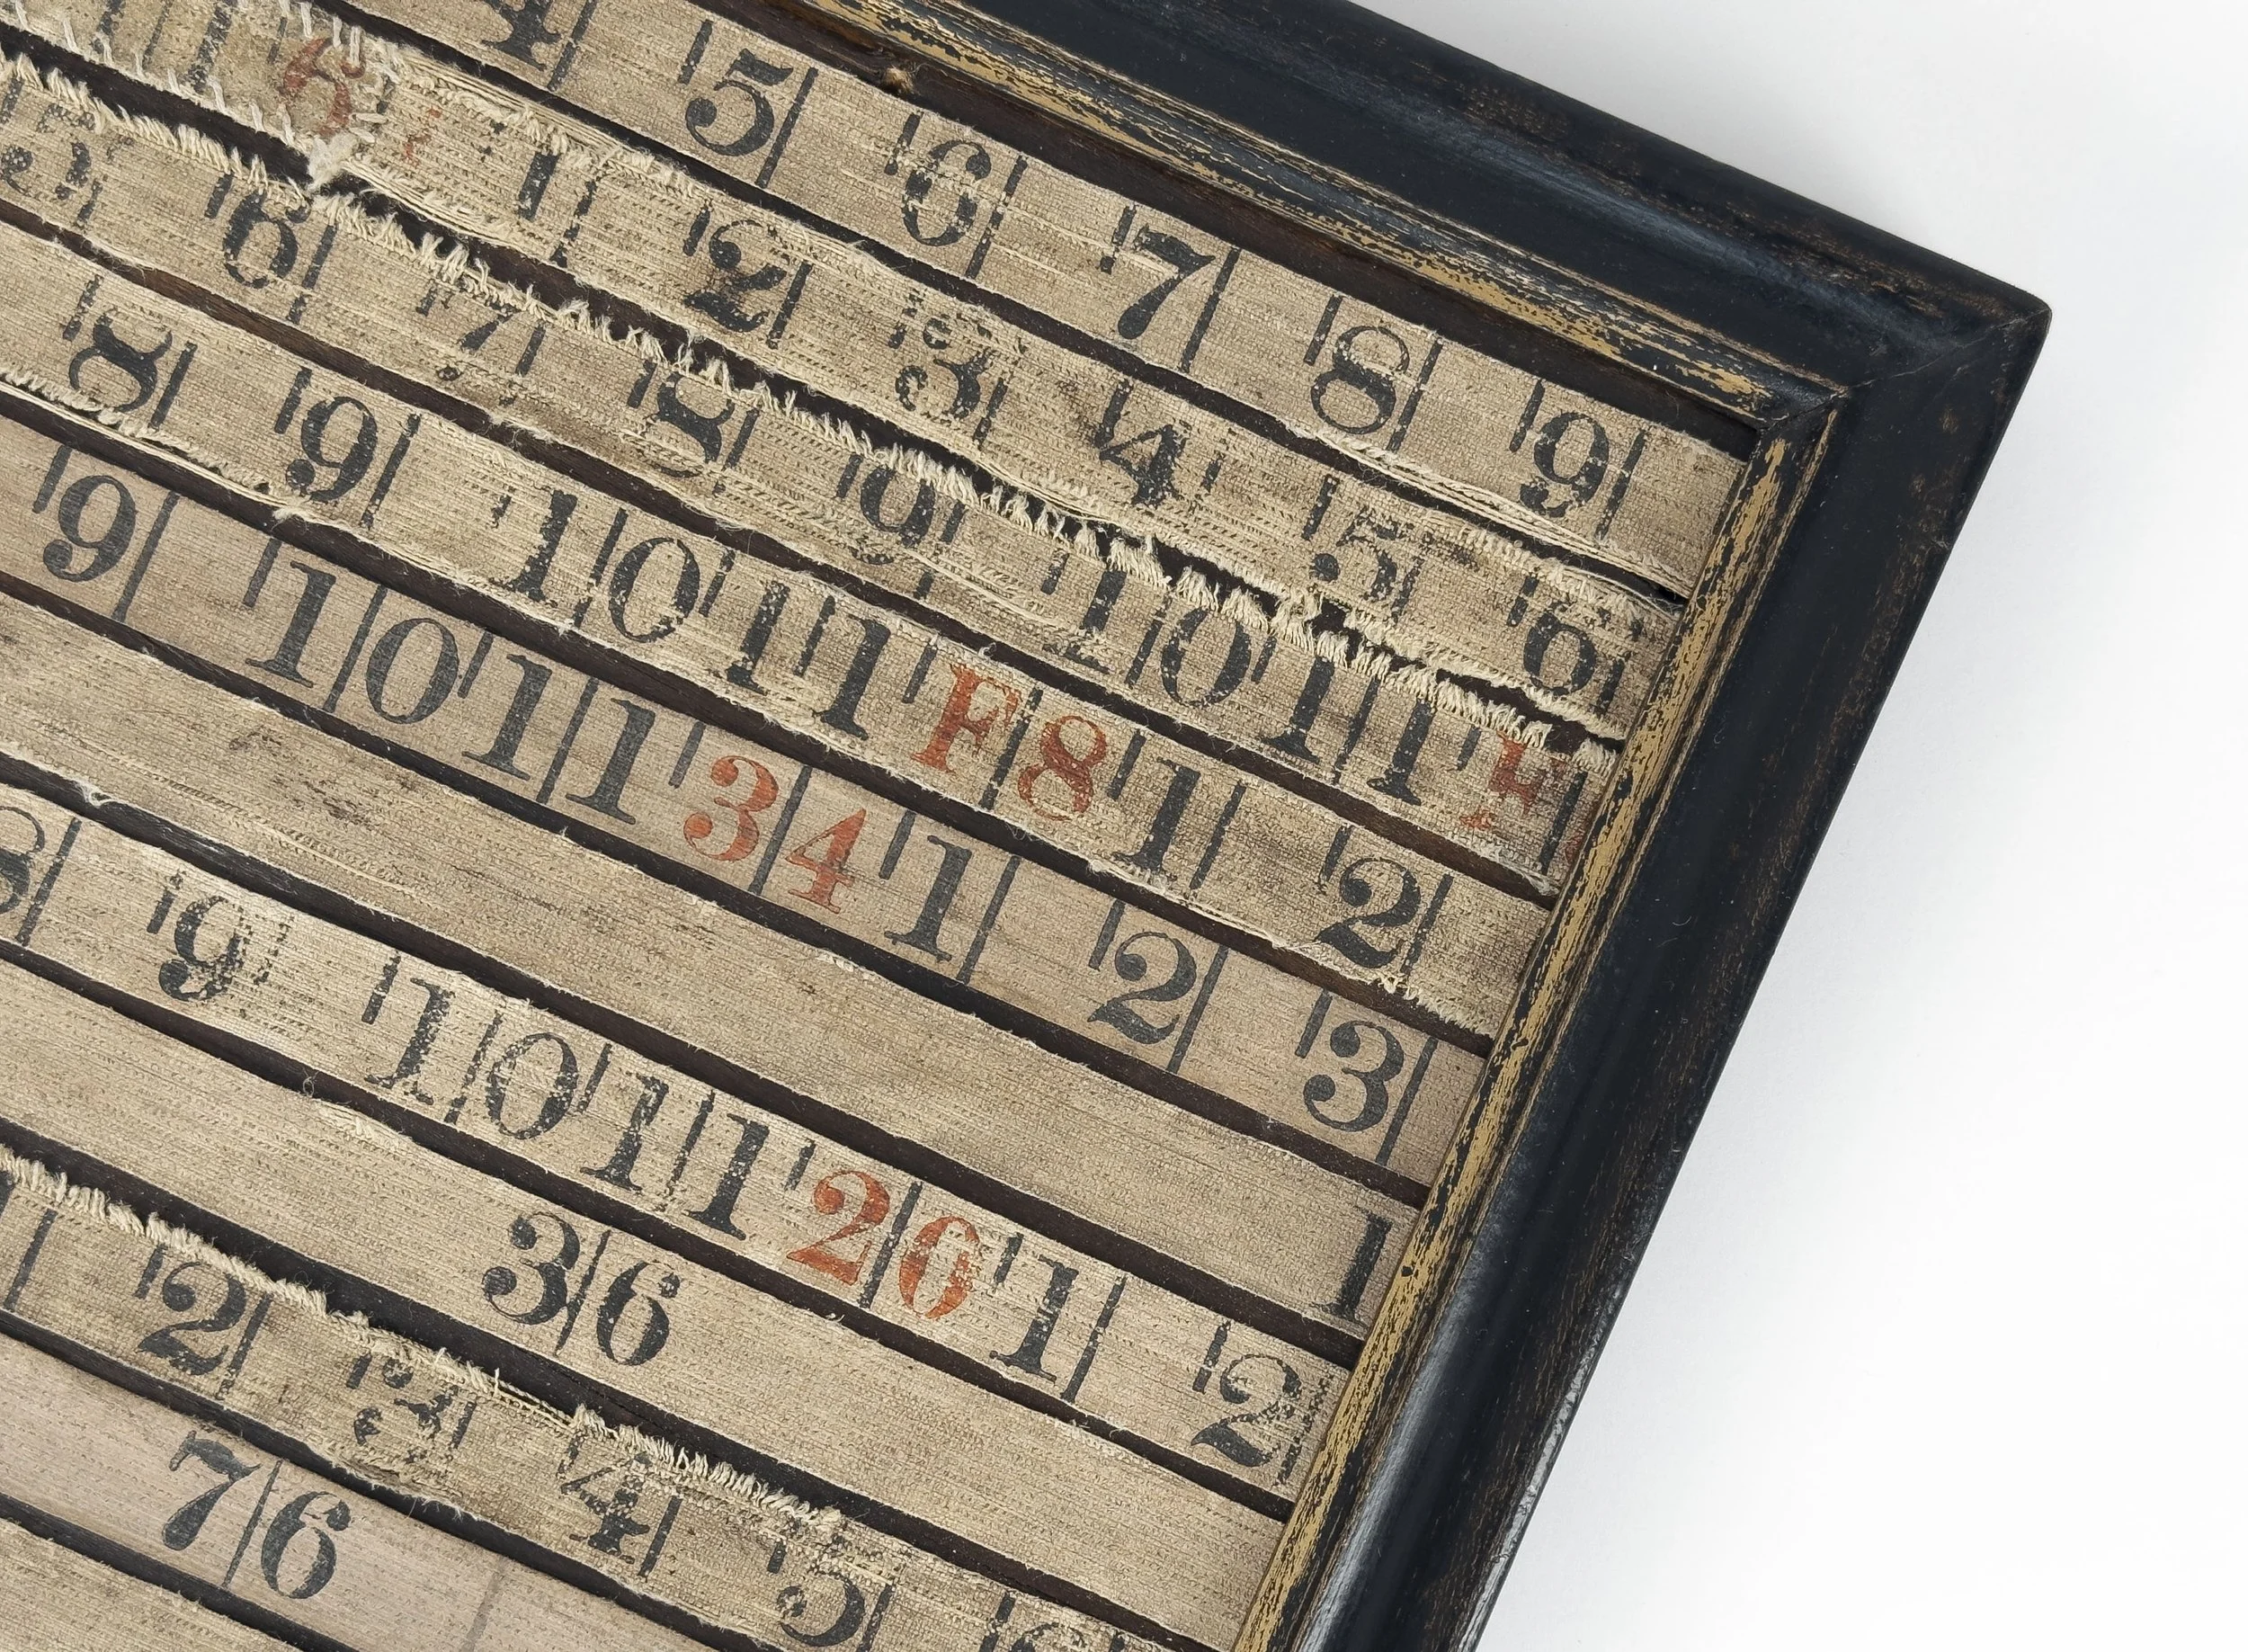 4 5 6 7 8 9
6 1 2 3 4 5 6
5 6 7 8 9 10 11 F
8 9 10 11 F8 1 2
9 10 11 34 1 2 3
1
8 9 10 11 20 1 2
36
2 3 4 5 6
76